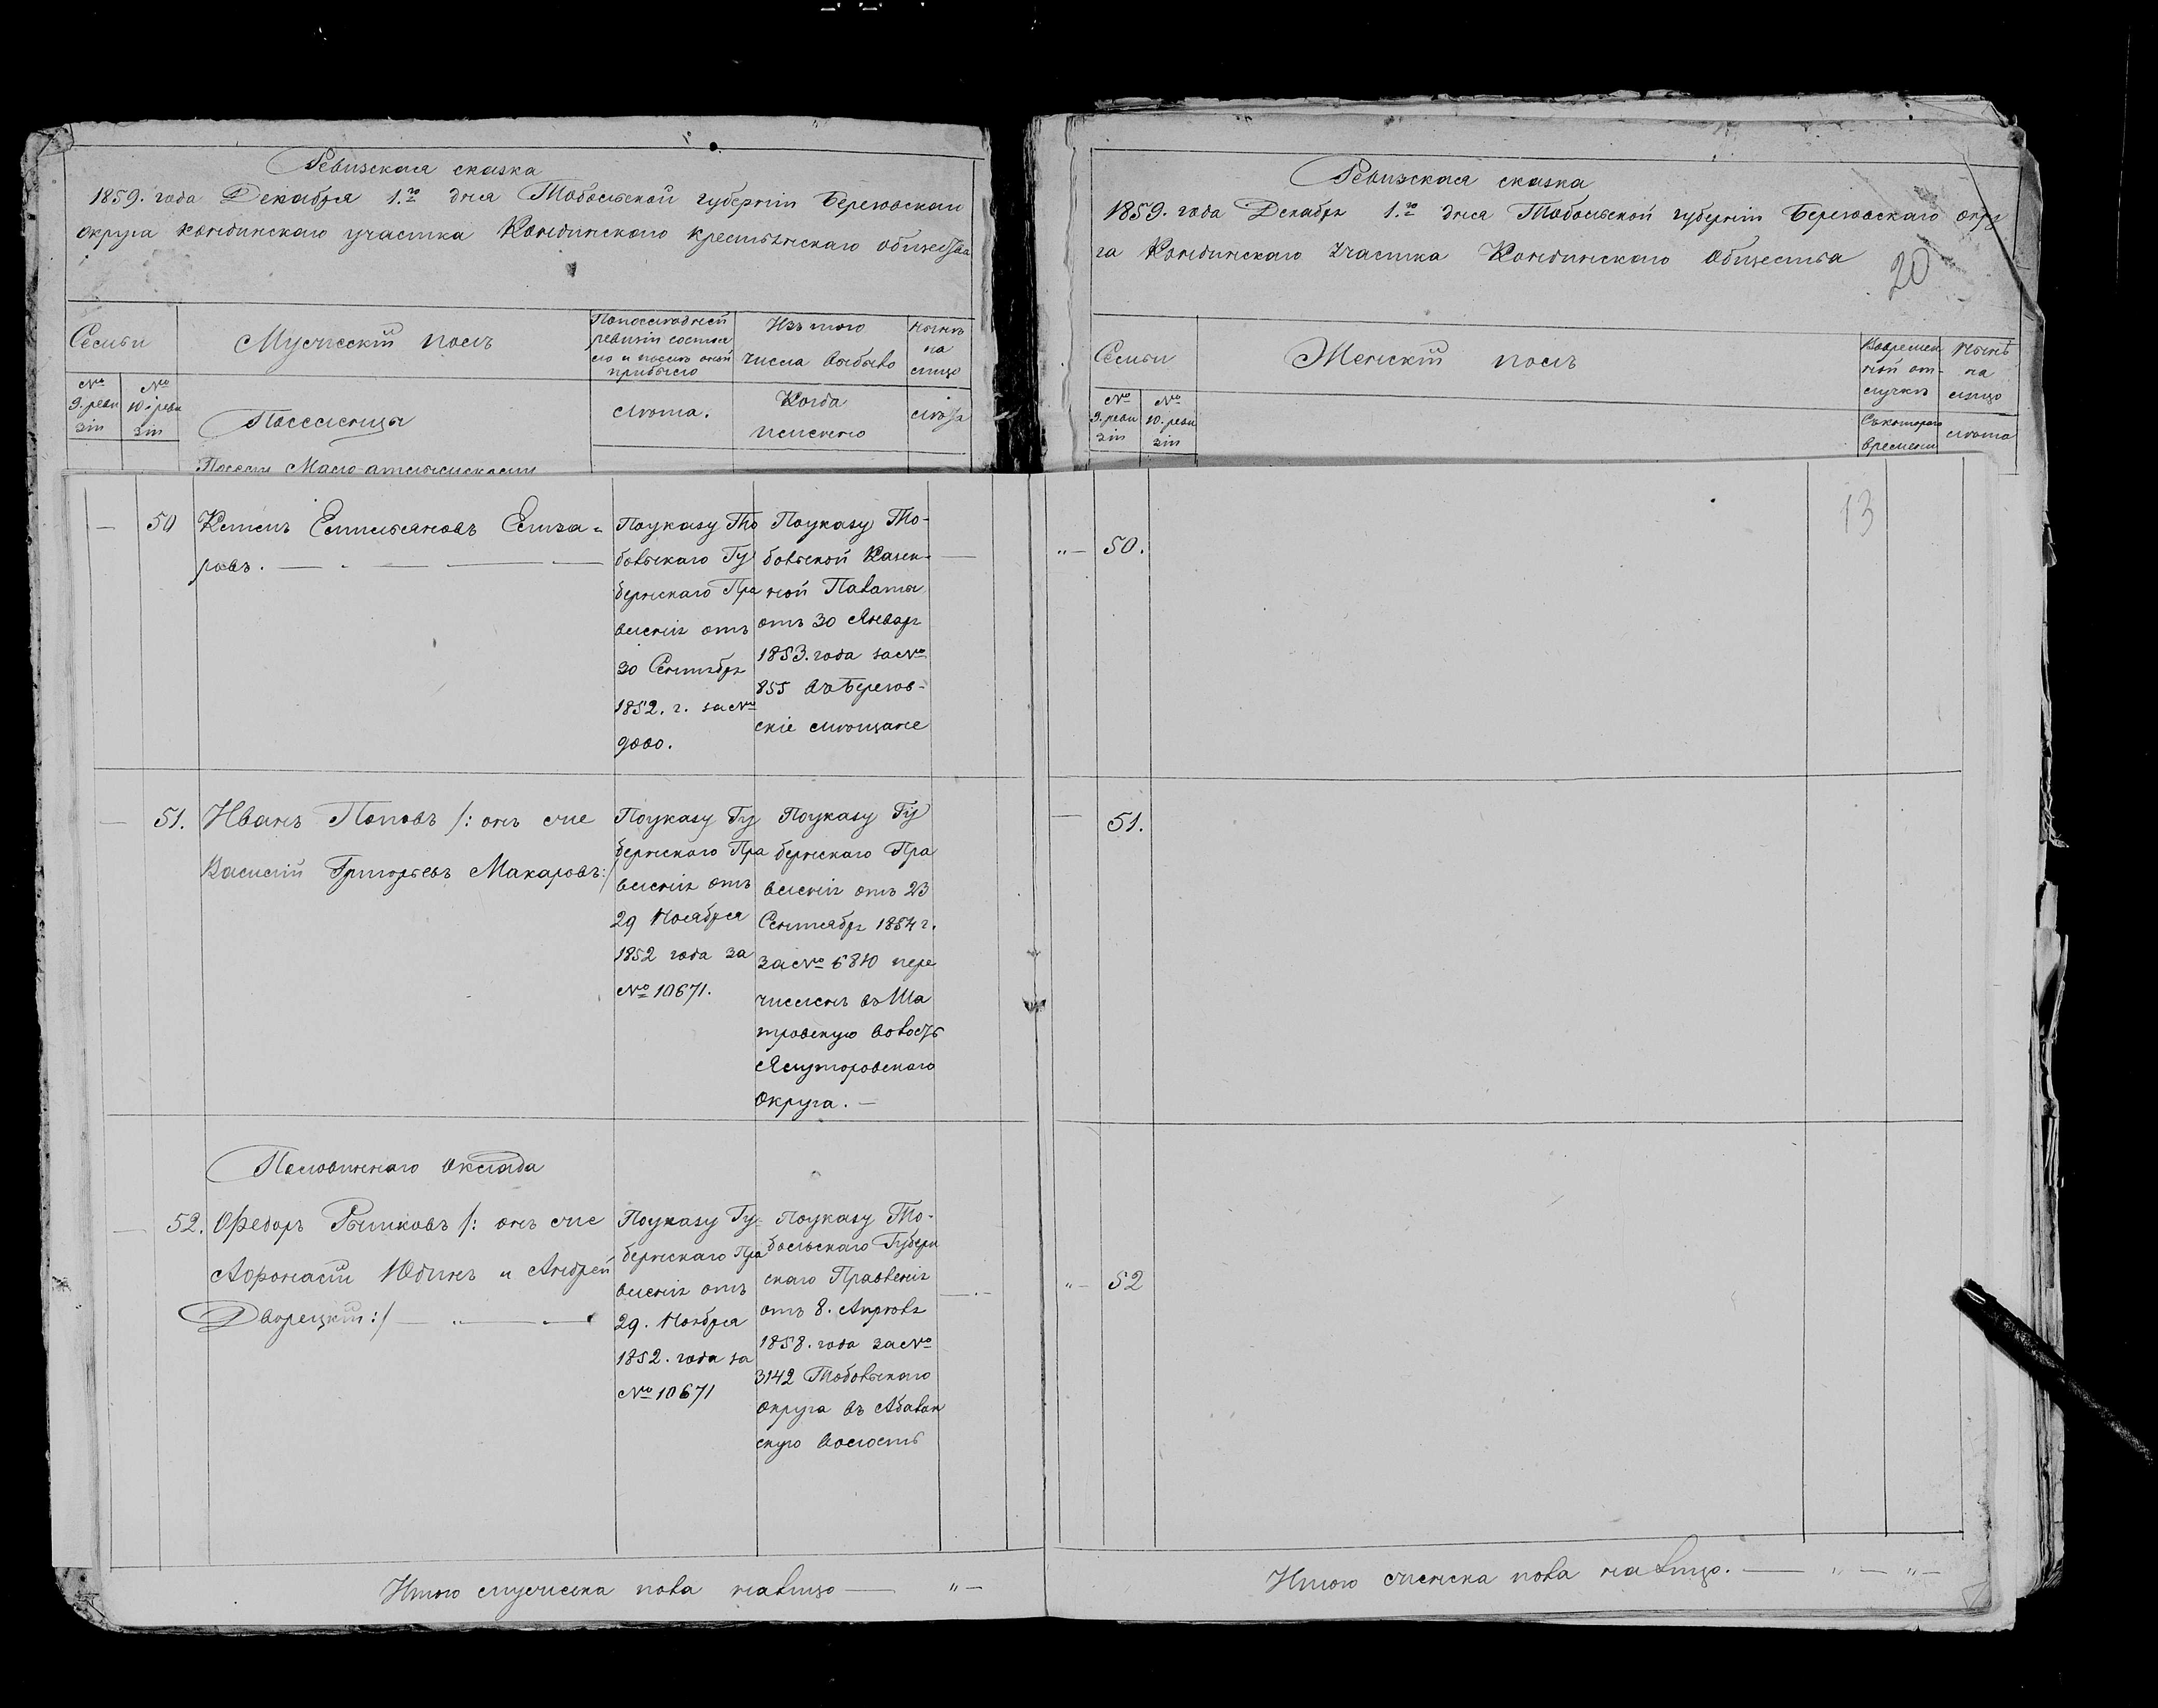 Ревизская сказка
1859. года Декабря 1.го дня Тобольской губернiи Березовскаго
округа Кондинскаго участка Кондинскаго крестьянскаго общества
Семьи
Мужескiй полъ
По последней
ревизiи состоя
ло и после оной
прибыло
Изъ того
числа выбыло
Ныне
на
лицо
№
9. реви
зiи
№
10. реви
зiи
Поселенцы
лета.
Когда
именно
лета
50
Емельяновъ Елиза-
ровъ.
По указу То
больскаго Гу
бернскаго Пра
вленiя отъ
30 Сентября
1852. г. за №
9000.
По указу То-
больской Казен-
ной Палаты
отъ 30 Января
1853. года за №
855 въ Березов-
скiе мещане
51.
Иванъ Поповъ /: онъ же
Василiй Григорьевъ Макаровъ:/
По указу Гу
бернскаго Пра
вленiя отъ
29 Ноября
1852 года за
№ 10671.
По указу Гу
бернскаго Пра
вленiя отъ 23
Сентября 1854 г.
за № 6810 пере
численъ въ Ша
тровскую волость
Ялуторовскаго
Округа.
Половиннаго оклада
52.
Ѳедоръ Рычковъ /: онъ же
Афонасiй Юдинъ и Андрей
Дворецкiй:/
По указу Гу-
бернскаго Пра
вленiя отъ
29. Ноября
1852. года за
№ 10671
По указу То-
больскаго Губерн
скаго Правленiя
отъ 8. Апреля
1858. года за №
3142 Тобольскаго
округа въ Абалак
скую волость
Итого мужеска пола на лицо
Ревизская сказка
1859. года Декабря 1.го дня Тобольской губернiи Березовскаго окру
га Кондинскаго участка Кондинскаго Общества
20
Семьи
Женскiй полъ
Во времен
ной от-
лучке
Ныне
на
лицо
№
9. реви
зiи
№
10. реви
зiи
Съ котораго
времени
лета
13
50.
51.
52
Итого женска пола на лицо.